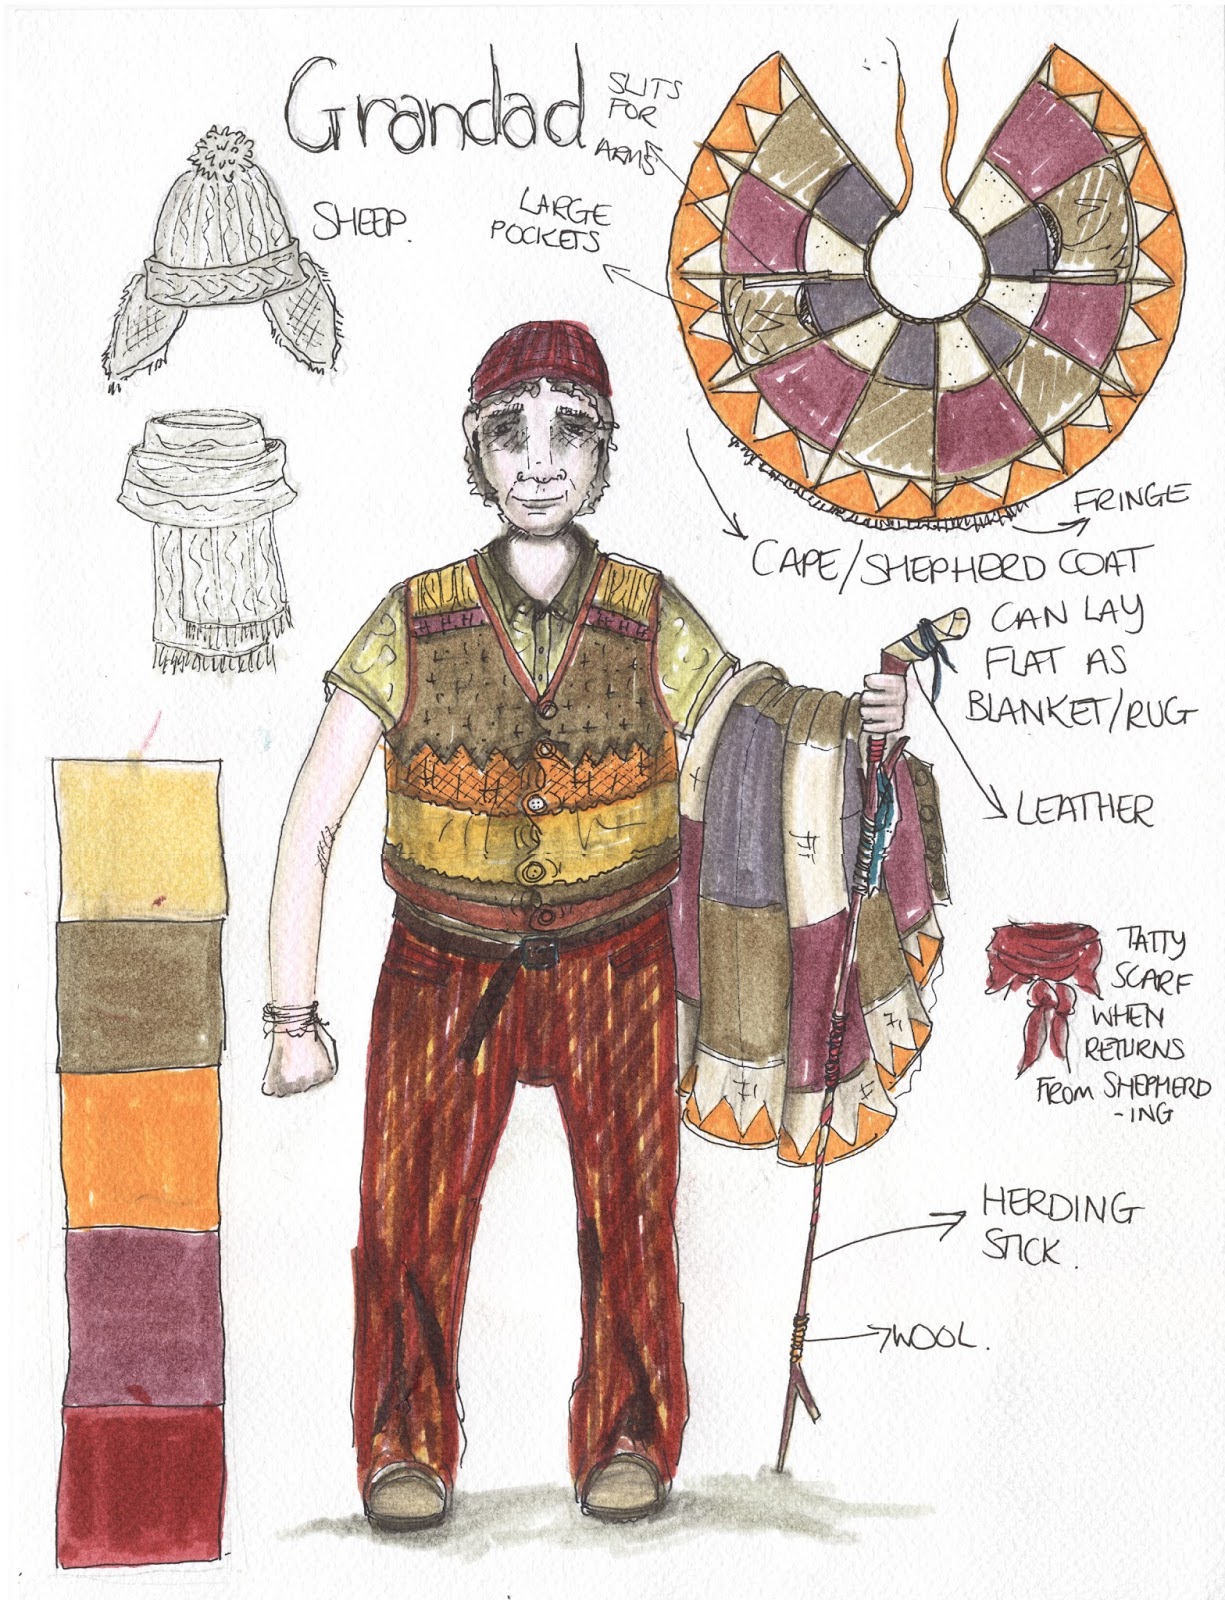 Grandad
SLITS
FOR
ARMS
SHEEP.
LARGE
POCKETS
FRINGE
CAPE/SHEPHERD COAT
CAN LAY
FLAT AS
BLANKET/RUG
LEATHER
TATTY
SCARF
WHEN
RETURNS
FROM SHEPHERD
-ING
HERDING
STICK.
WOOL.